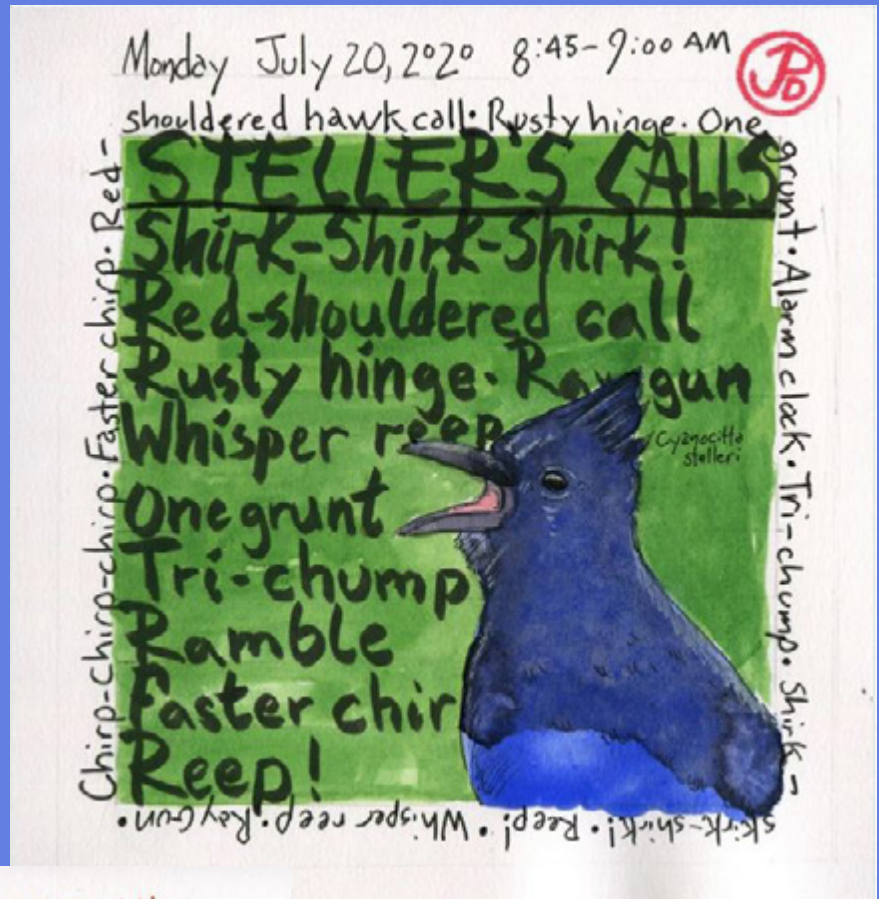 Monday July 20, 2020 8:45-9:00 AM
JPD
shouldered hawk call· Rusty hinge. One
grunt· Alarm clock· Tri-chump. Shirk-
skirk-shirk! · Reep! · Whisper reep. Ray Gun ·
Chirp-Chirp-chirp· Faster chirp· Red-
STELLER'S CALLS
Shirk-Shirk-Shirk!
Red-shouldered call
Rusty hinge· Ray gun
Whisper reep
Cyanocitta
stelleri
One grunt
Tri-chump
Ramble
Faster chir
Reep!